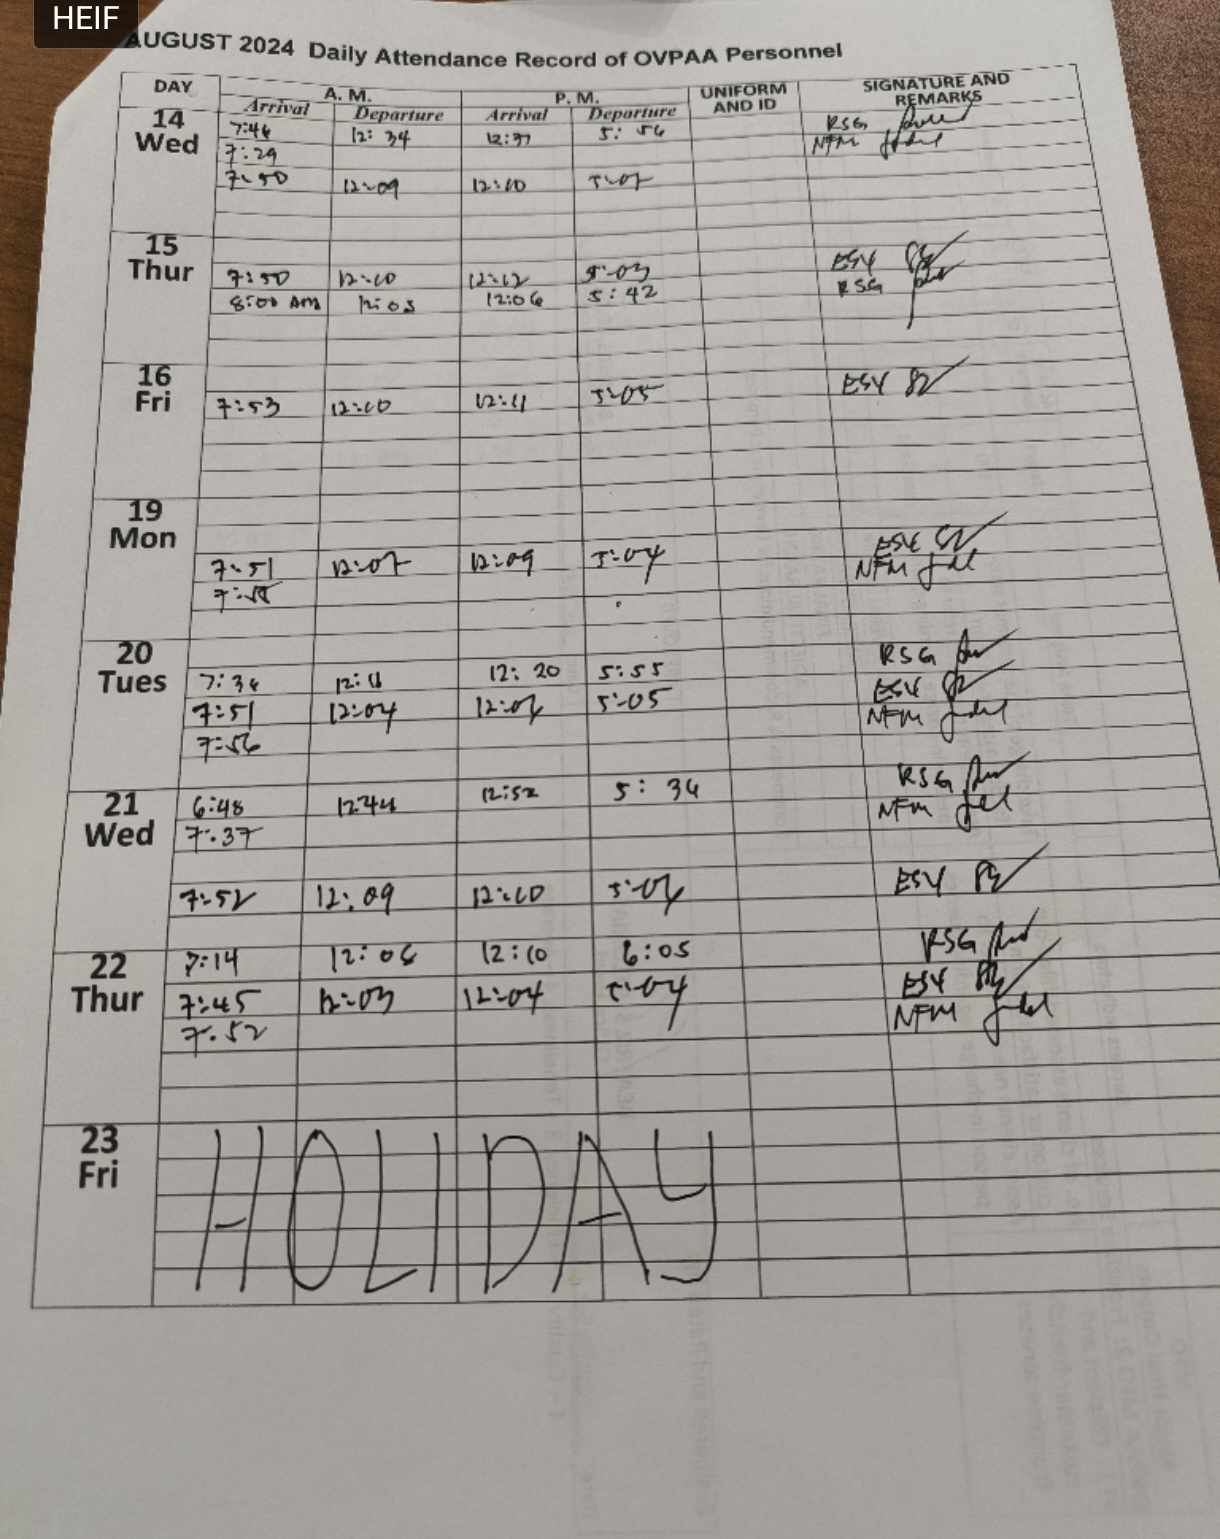 HEIF
AUGUST 2024 Daily Attendance Record of OVPAA Personnel
DAY A. M. P. M. UNIFORM AND ID SIGNATURE AND REMARKS
Arrival Departure Arrival Departure
14 Wed
7:46 12:34 12:37 5:56 RSG
7:29 NFM
7:50 12:09 12:10 5:02
15 Thur
7:50 12:10 12:12 5:03 ESY
8:00 AM 12:05 12:06 5:42 RSG
16 Fri
7:53 12:10 12:11 5:05 ESY
19 Mon
7:51 12:07 12:09 5:04 ESY
NFM
20 Tues
7:36 12:20 5:55 RSG
7:51 12:04 5:05 ESY
7:56 NFM
21 Wed
6:48 1244 12:52 5:34 RSG
7:37 NFM
7:52 12:09 12:10 ESY
22 Thur
7:14 12:06 12:10 6:05 RSG
7:45 12:03 12:04 5:04 ESY
7:52 NFM
23 Fri
HOLIDAY